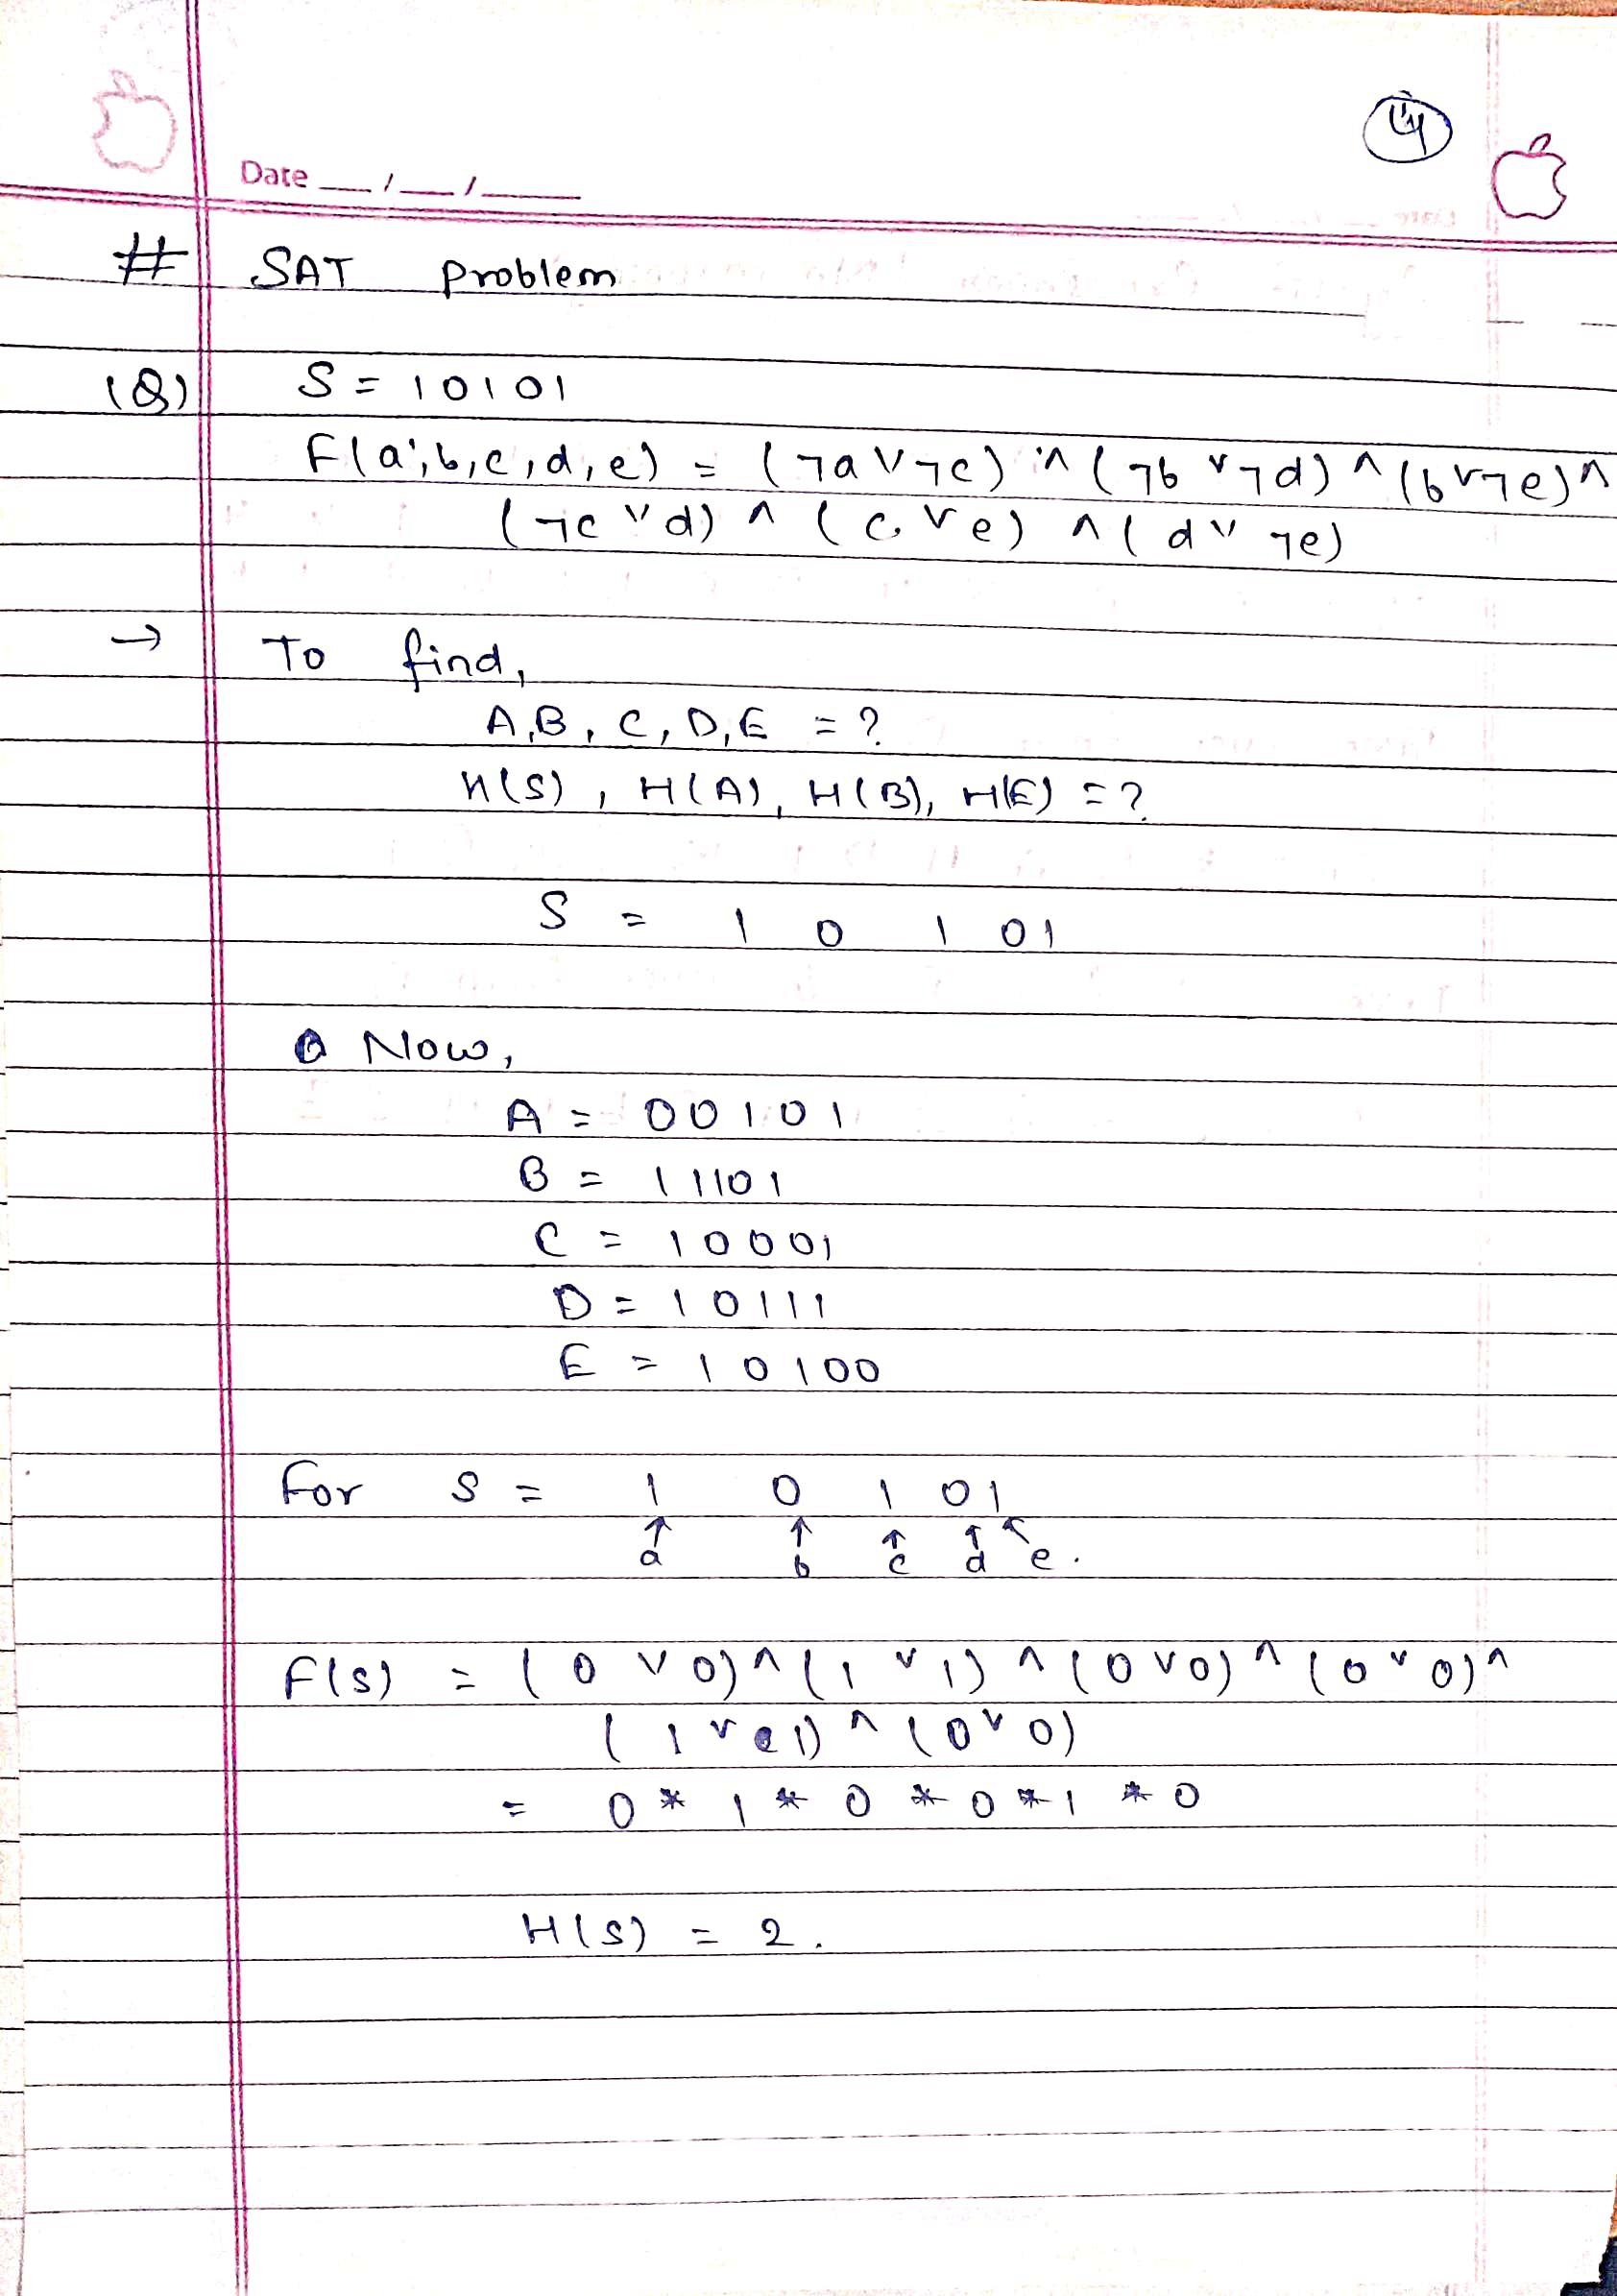 Date __/__/____
# SAT Problem
(Q) S = 10101
F(a,b,c,d,e) = (¬a∨¬c) ∧ (¬b∨¬d) ∧ (b∨¬e) ∧
(¬c∨d) ∧ (c∨e) ∧ (d∨¬e)
→ To find,
A,B,C,D,E = ?
H(S), H(A), H(B), H(E) = ?
S = 1 0 1 0 1
Now,
A = 00101
B = 11101
C = 10001
D = 10111
E = 10100
For S = 1 0 1 0 1
↑ ↑ ↑ ↑ ↑
a b c d e.
F(S) = (0∨0) ∧ (1∨1) ∧ (0∨0) ∧ (0∨0) ∧
(1∨1) ∧ (0∨0)
= 0 * 1 * 0 * 0 * 1 * 0
H(S) = 2.